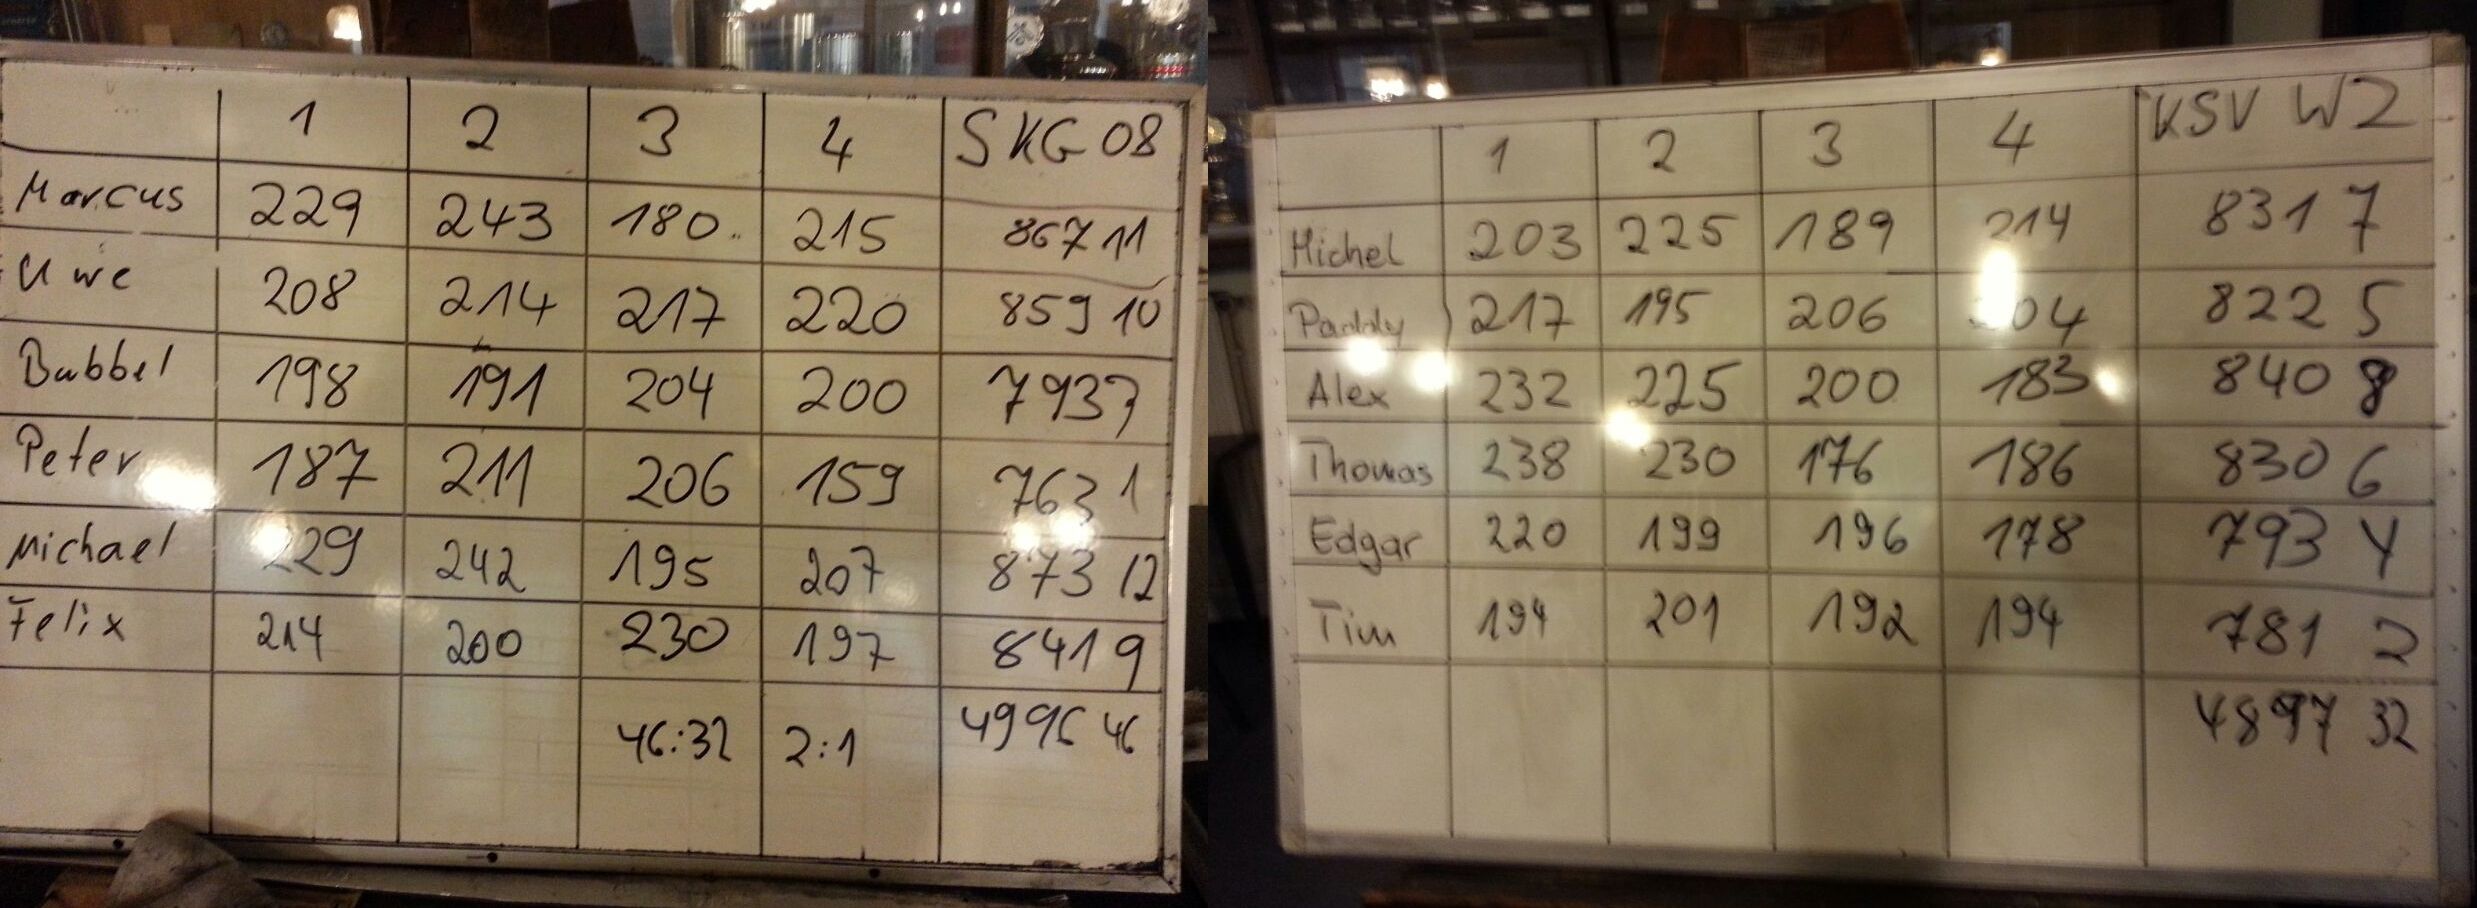 1 2 3 4 SKG 08
Marcus 229 243 180 215 867 11
Uwe 208 214 217 220 859 10
Bubbel 198 191 204 200 793 3
Peter 187 211 206 159 763 1
Michael 229 242 195 207 873 12
Felix 214 200 230 197 841 9
46:32 2:1 4996 46
1 2 3 4 KSV WZ
Michel 203 225 189 214 831 7
Paddy 217 195 206 204 822 5
Alex 232 225 200 183 840 8
Thomas 238 230 176 186 830 6
Edgar 220 199 196 178 793 4
Tim 194 201 192 194 781 2
4897 32